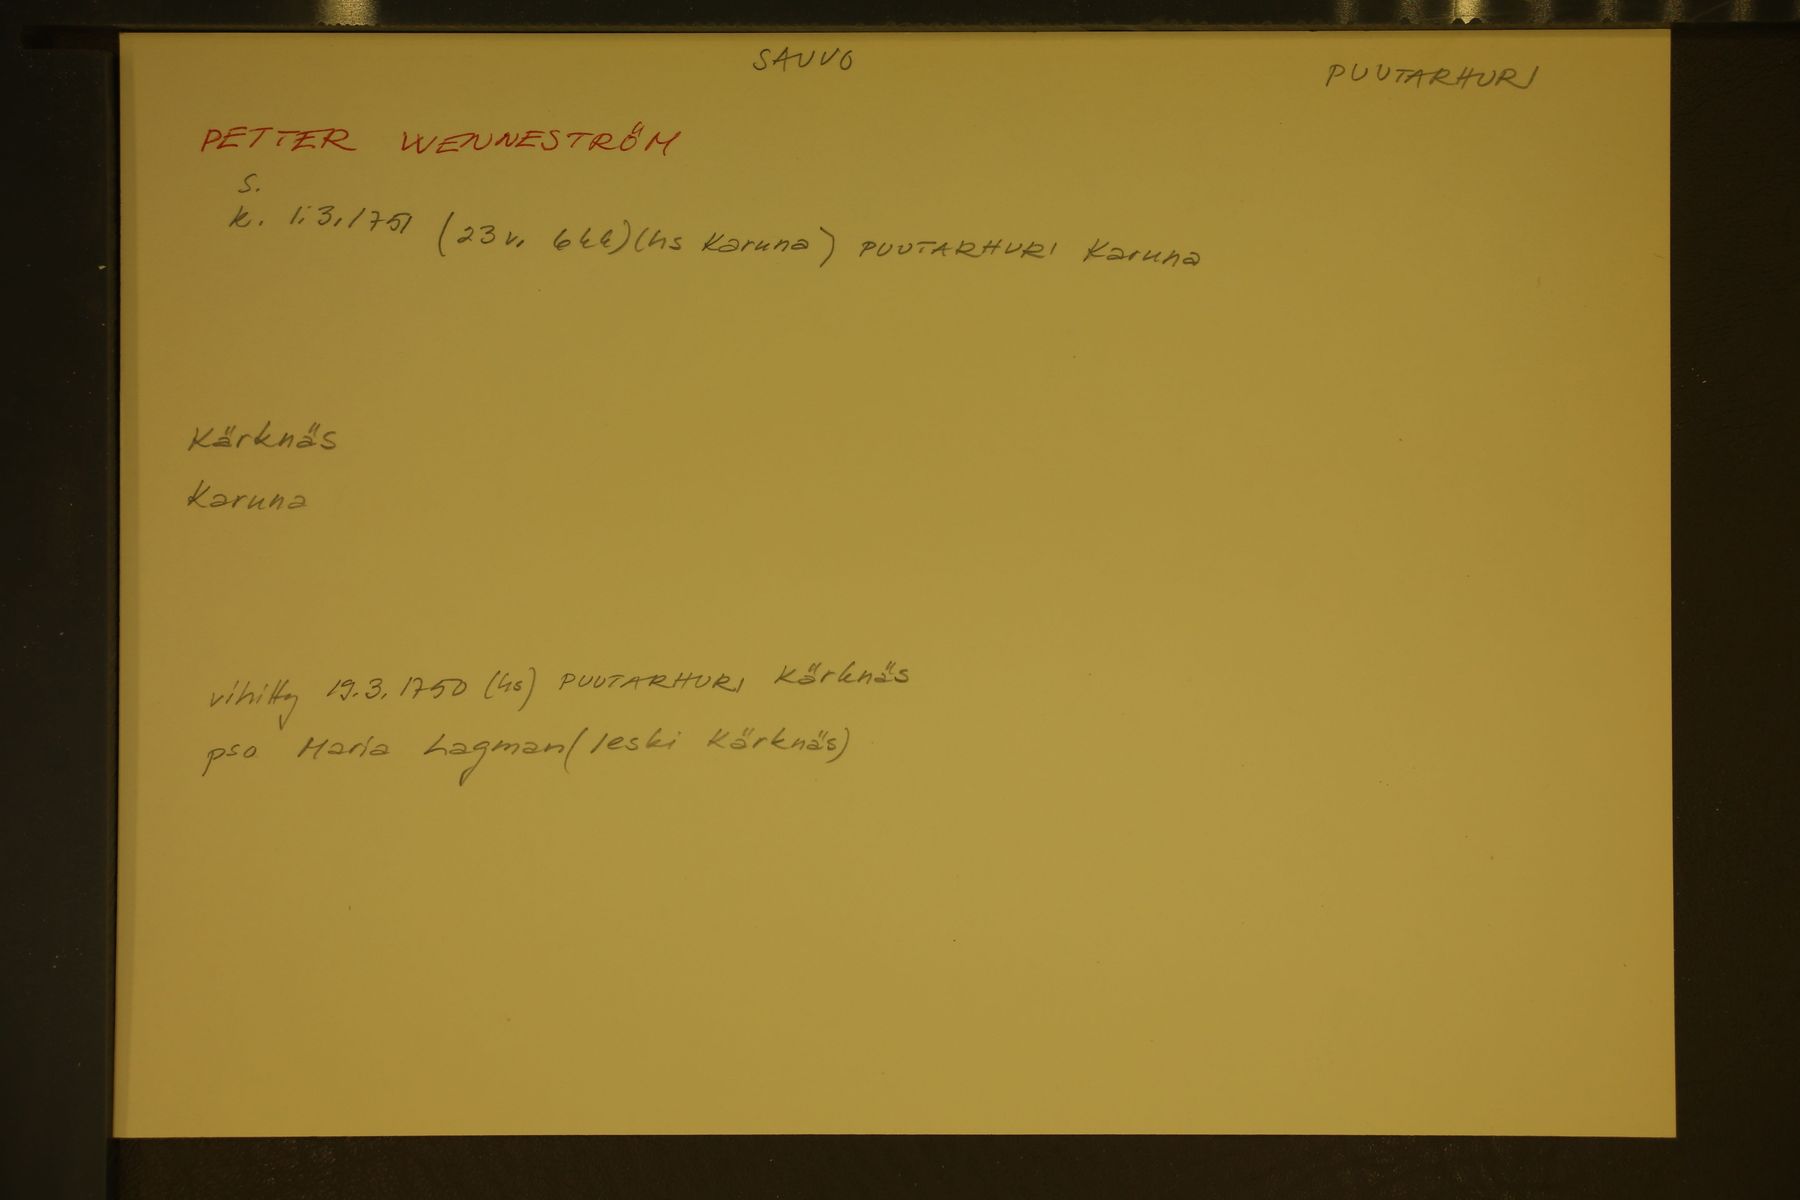 SAUVO
PUUTARHURI
PETTER WENNESTRÖM
s.
k. 1.3.1751 (23 v. 6 kk) (hs Karuna) PUUTARHURI Karuna
Kärknäs
Karuna
vihitty 19.3.1750 (hs) PUUTARHURI Kärknäs
pso Maria Lagman (leski Kärknäs)